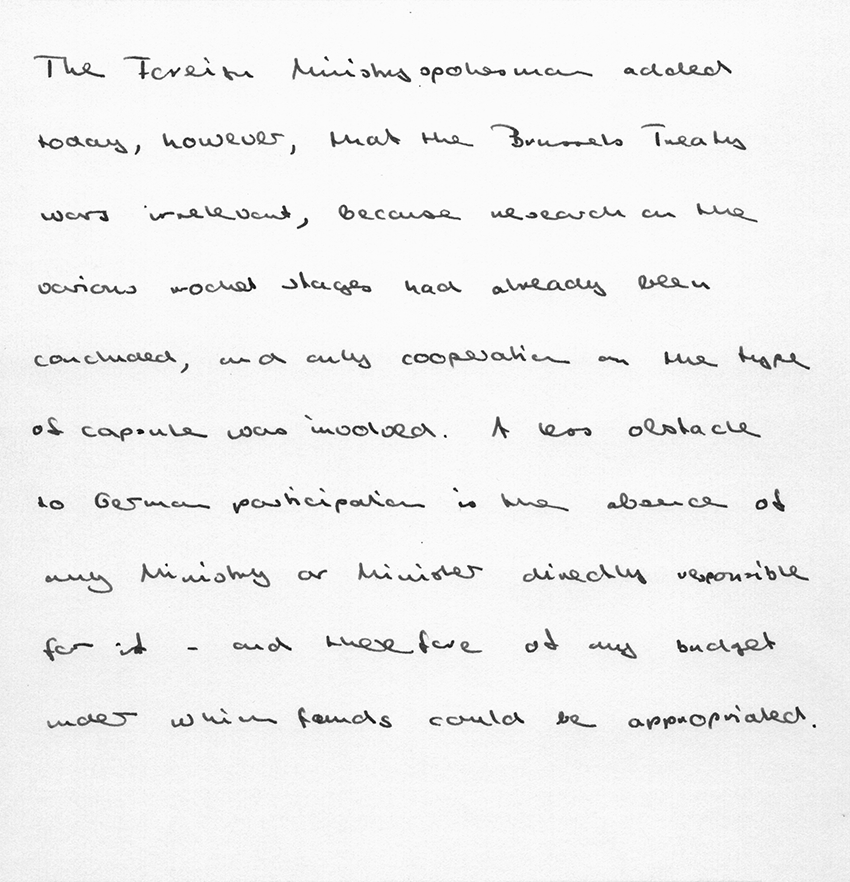 The Foreign Ministry spokesman added
today, however, that the Brussels Treaty
was irrelevant, because research on the
various rocket stages had already been
concluded, and only cooperation on the type
of capsule was involved. A less obstacle
to German participation is the absence of
any Ministry or Minister directly responsible
for it - and therefore of any budget
under which founds could be appropriated.